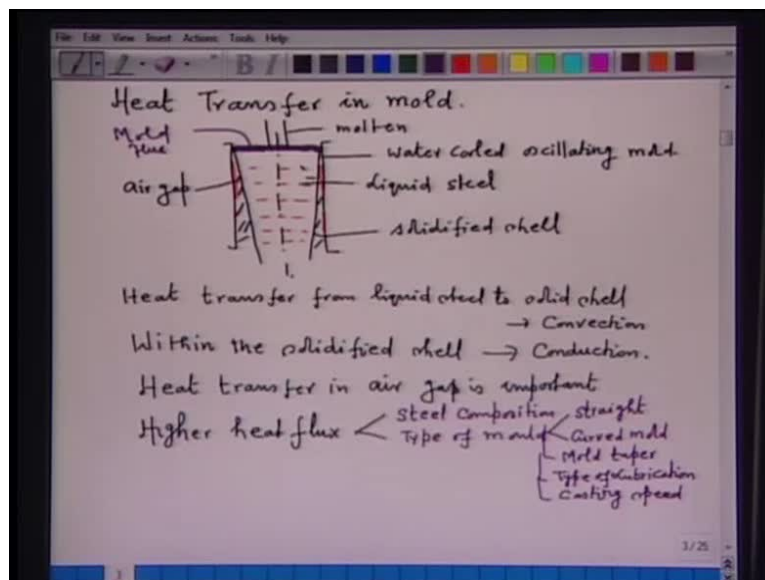 File Edit View Insert Actions Tools Help
B I
Heat Transfer in mold.
Mold flux
molten
water cooled oscillating mold
air gap
liquid steel
solidified shell
Heat transfer from liquid steel to solid shell
→ Convection
Within the solidified shell → Conduction.
Heat transfer in air gap is important
Higher heat flux < Steel Composition
Type of mould
straight
Curved mold
Mold taper
Type of lubrication
Casting speed
3/25